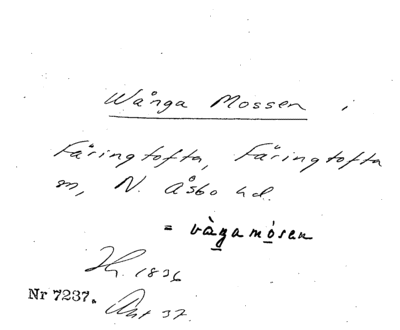 Wånga Mossen i
Färingtofta, Färingtofta
sn, N. Åsbo hd.
= vàgamósen
1836
Nr 7237.
37.